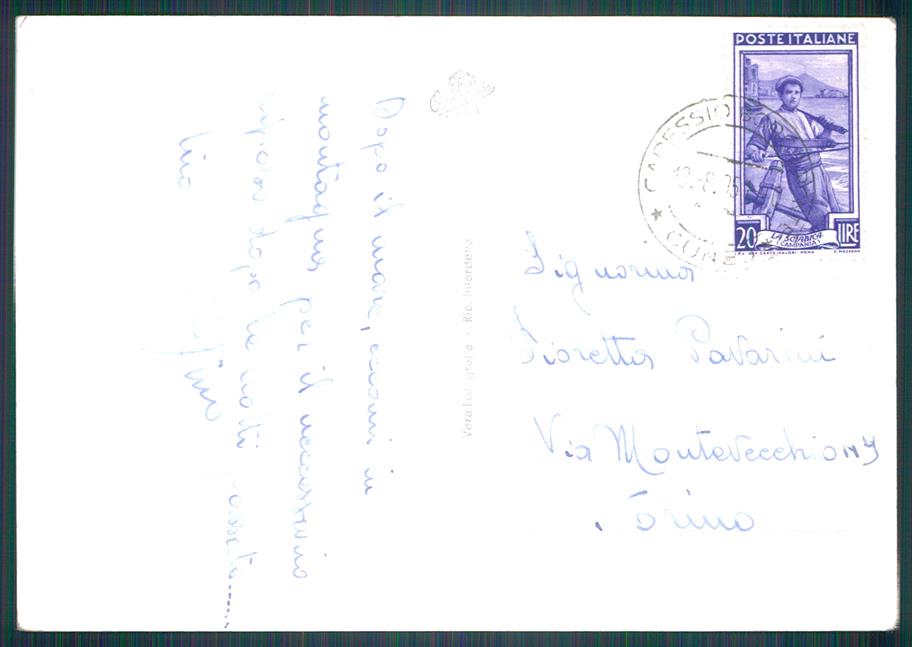 Dopo il mare, eccomi in
montagna per il necessario
riposo dopo le notti passate.......
Vera Fotografia - Rip. Interdetta
POSTE ITALIANE
20 LIRE
LA SCIABICA
(CAMPANIA)
GARESSIO
CUNEO
Signorina
Fioretta Pavarini
Via Montevecchio N 9
Torino